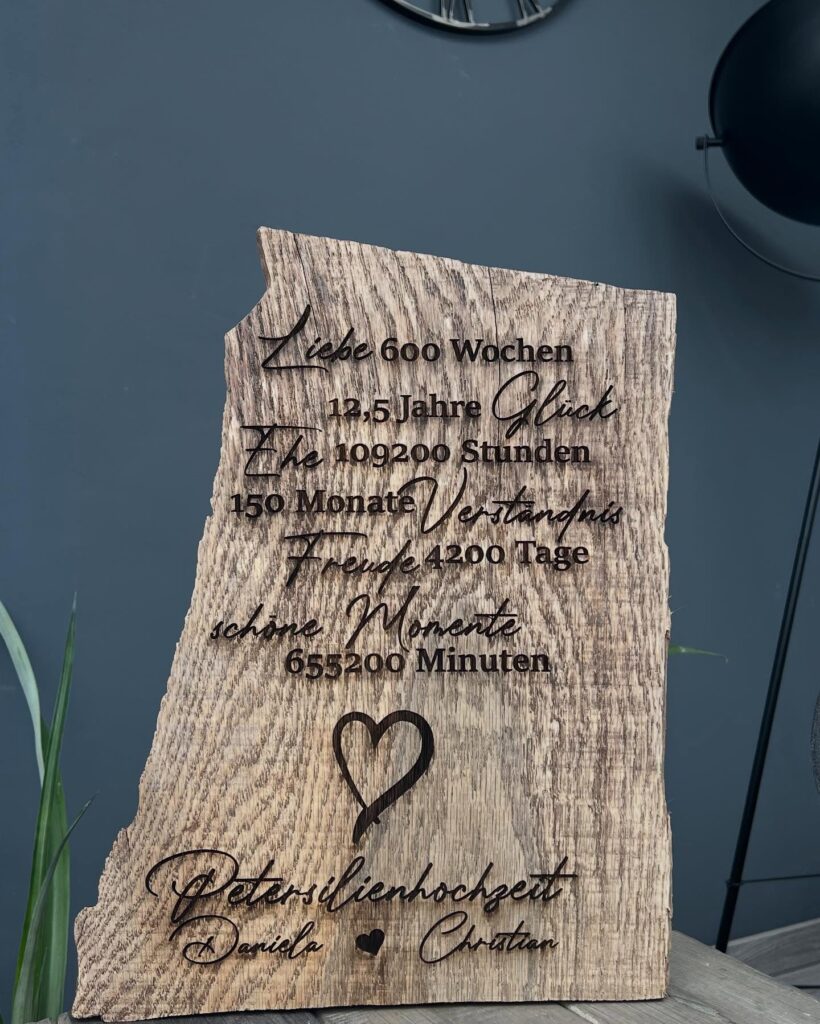 Liebe 600 Wochen
12,5 Jahre Glück
Ehe 109200 Stunden
150 Monate Verständnis
Freude 4200 Tage
schöne Momente
655200 Minuten
Petersilienhochzeit
Daniela Christian